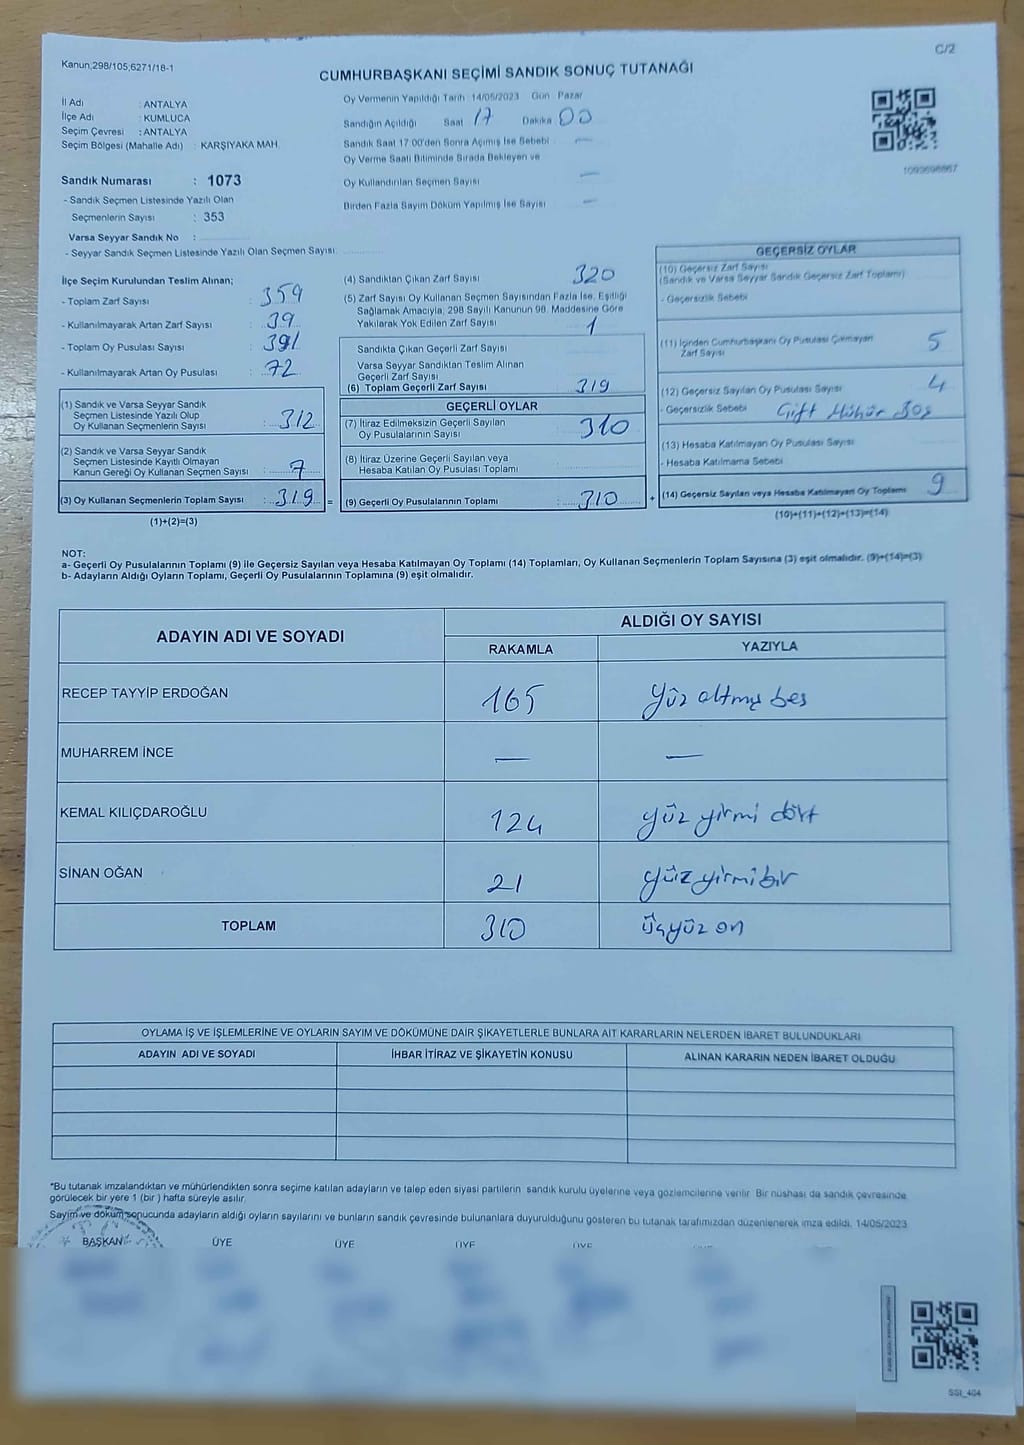 Kanun;298/105;6271/18-1
C/2
CUMHURBAŞKANI SEÇİMİ SANDIK SONUÇ TUTANAĞI
İl Adı : ANTALYA
İlçe Adı : KUMLUCA
Seçim Çevresi : ANTALYA
Seçim Bölgesi (Mahalle Adı) : KARŞIYAKA MAH.
Oy Vermenin Yapıldığı Tarih 14/05/2023 Gün Pazar
Sandığın Açıldığı Saat 17 Dakika 00
Sandık Saat 17:00'den Sonra Açımış İse Sebebi —
Oy Verme Saati Bitiminde Sırada Bekleyen ve
Oy Kullandırılan Seçmen Sayısı —
Birden Fazla Sayım Döküm Yapılmış İse Sayısı —
1093698867
Sandık Numarası : 1073
- Sandık Seçmen Listesinde Yazılı Olan
Seçmenlerin Sayısı : 353
Varsa Seyyar Sandık No :
- Seyyar Sandık Seçmen Listesinde Yazılı Olan Seçmen Sayısı:
İlçe Seçim Kurulundan Teslim Alınan;
- Toplam Zarf Sayısı : 359
- Kullanılmayarak Artan Zarf Sayısı : 39
- Toplam Oy Pusulası Sayısı : 391
- Kullanılmayarak Artan Oy Pusulası : 72
(1) Sandık ve Varsa Seyyar Sandık
Seçmen Listesinde Yazılı Olup
Oy Kullanan Seçmenlerin Sayısı : 312
(2) Sandık ve Varsa Seyyar Sandık
Seçmen Listesinde Kayıtlı Olmayan
Kanun Gereği Oy Kullanan Seçmen Sayısı : 7
(3) Oy Kullanan Seçmenlerin Toplam Sayısı : 319 =
(1)+(2)=(3)
(4) Sandıktan Çıkan Zarf Sayısı 320
(5) Zarf Sayısı Oy Kullanan Seçmen Sayısından Fazla İse, Eşitliği
Sağlamak Amacıyla, 298 Sayılı Kanunun 98. Maddesine Göre
Yakılarak Yok Edilen Zarf Sayısı 1
Sandıkta Çıkan Geçerli Zarf Sayısı
Varsa Seyyar Sandıktan Teslim Alınan
Geçerli Zarf Sayısı
(6) Toplam Geçerli Zarf Sayısı 319
GEÇERLİ OYLAR
(7) İtiraz Edilmeksizin Geçerli Sayılan
Oy Pusulalarının Sayısı 310
(8) İtiraz Üzerine Geçerli Sayılan veya
Hesaba Katılan Oy Pusulası Toplamı
(9) Geçerli Oy Pusulalarının Toplamı : 310 +
GEÇERSİZ OYLAR
(10) Geçersiz Zarf Sayısı
(Sandık ve Varsa Seyyar Sandık Geçersiz Zarf Toplamı)
- Geçersizlik Sebebi
(11) İçinden Cumhurbaşkanı Oy Pusulası Çıkmayan
Zarf Sayısı 5
(12) Geçersiz Sayılan Oy Pusulası Sayısı 4
- Geçersizlik Sebebi Çift Mühür Boş
(13) Hesaba Katılmayan Oy Pusulası Sayısı
- Hesaba Katılmama Sebebi
(14) Geçersiz Sayılan veya Hesaba Katılmayan Oy Toplamı 9
(10)+(11)+(12)+(13)=(14)
NOT:
a- Geçerli Oy Pusulalarının Toplamı (9) ile Geçersiz Sayılan veya Hesaba Katılmayan Oy Toplamı (14) Toplamları, Oy Kullanan Seçmenlerin Toplam Sayısına (3) eşit olmalıdır. (9)+(14)=(3)
b- Adayların Aldığı Oyların Toplamı, Geçerli Oy Pusulalarının Toplamına (9) eşit olmalıdır.
ADAYIN ADI VE SOYADI ALDIĞI OY SAYISI
RAKAMLA YAZIYLA
RECEP TAYYİP ERDOĞAN 165 yüz altmış beş
MUHARREM İNCE — —
KEMAL KILIÇDAROĞLU 124 yüz yirmi dört
SİNAN OĞAN 21 yüz yirmi bir
TOPLAM 310 üçyüz on
OYLAMA İŞ VE İŞLEMLERİNE VE OYLARIN SAYIM VE DÖKÜMÜNE DAİR ŞİKAYETLERLE BUNLARA AİT KARARLARIN NELERDEN İBARET BULUNDUKLARI
ADAYIN ADI VE SOYADI İHBAR İTİRAZ VE ŞİKAYETİN KONUSU ALINAN KARARIN NEDEN İBARET OLDUĞU
*Bu tutanak imzalandıktan ve mühürlendikten sonra seçime katılan adayların ve talep eden siyasi partilerin sandık kurulu üyelerine veya gözlemcilerine verilir. Bir nüshası da sandık çevresinde
görülecek bir yere 1 (bir ) hafta süreyle asılır.
Sayım ve döküm sonucunda adayların aldığı oyların sayılarını ve bunların sandık çevresinde bulunanlara duyurulduğunu gösteren bu tutanak tarafımızdan düzenlenerek imza edildi. 14/05/2023
BAŞKAN ÜYE ÜYE ÜYE ÜYE ÜYE
SSI_404